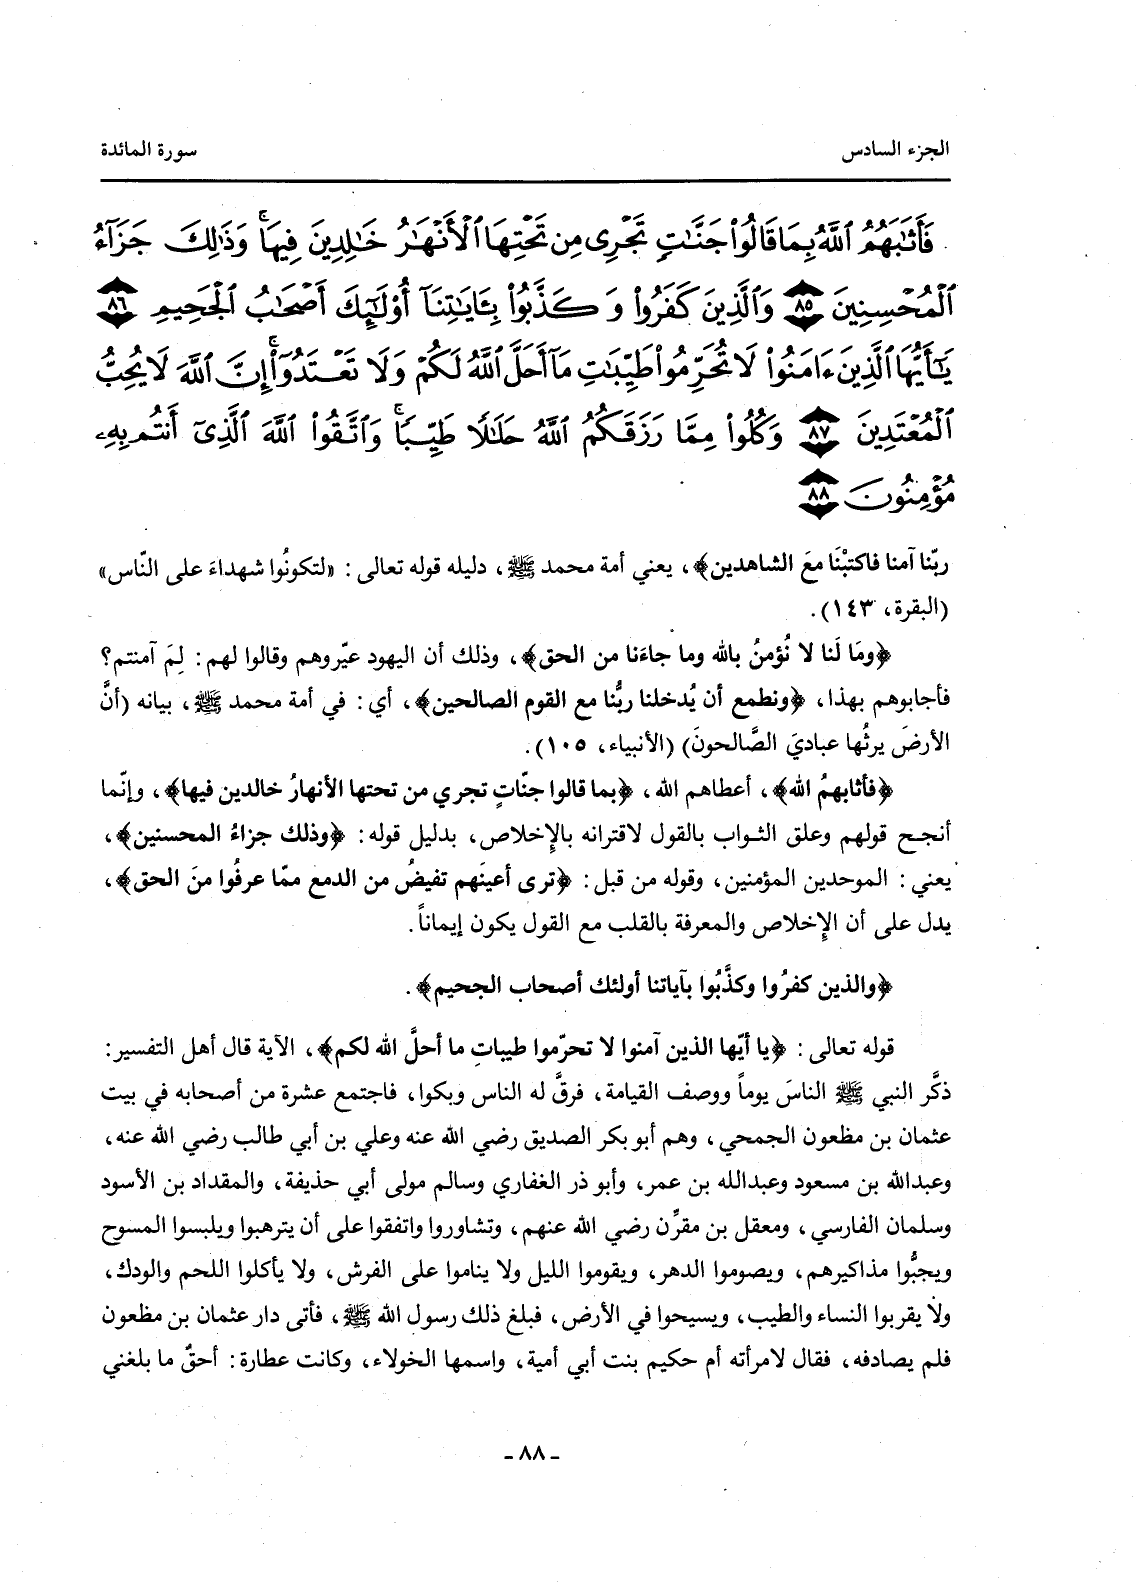 الجزء السادس
سورة المائدة
فَأَثَٰبَهُمُ ٱللَّهُ بِمَا قَالُوا۟ جَنَّٰتٍ تَجْرِى مِن تَحْتِهَا ٱلْأَنْهَٰرُ خَٰلِدِينَ فِيهَا ۚ وَذَٰلِكَ جَزَآءُ
ٱلْمُحْسِنِينَ ٨٥ وَٱلَّذِينَ كَفَرُوا۟ وَكَذَّبُوا۟ بِـَٔايَٰتِنَآ أُو۟لَٰٓئِكَ أَصْحَٰبُ ٱلْجَحِيمِ ٨٦
يَٰٓأَيُّهَا ٱلَّذِينَ ءَامَنُوا۟ لَا تُحَرِّمُوا۟ طَيِّبَٰتِ مَآ أَحَلَّ ٱللَّهُ لَكُمْ وَلَا تَعْتَدُوٓا۟ ۚ إِنَّ ٱللَّهَ لَا يُحِبُّ
ٱلْمُعْتَدِينَ ٨٧ وَكُلُوا۟ مِمَّا رَزَقَكُمُ ٱللَّهُ حَلَٰلًا طَيِّبًا ۚ وَٱتَّقُوا۟ ٱللَّهَ ٱلَّذِىٓ أَنتُم بِهِۦ
مُؤْمِنُونَ ٨٨
ربّنا آمنا فاكتبْنَا معَ الشاهدين﴾، يعني أمة محمد ﷺ، دليله قوله تعالى: «لتكونُوا شهداءَ على النّاس»
(البقرة، ١٤٣).
﴿ومَا لَنا لا نُؤمنُ بالله وما جاءَنا من الحق﴾، وذلك أن اليهود عيّروهم وقالوا لهم: لِمَ آمنتم؟
فأجابوهم بهذا، ﴿ونطمع أن يُدخلنا ربُّنا مع القوم الصالحين﴾، أي: في أمة محمد ﷺ، بيانه (أنَّ
الأرضَ يرثُها عباديَ الصَّالحونَ) (الأنبياء، ١٠٥).
﴿فأثابهمُ الله﴾، أعطاهم الله، ﴿بما قالوا جنّاتٍ تجري من تحتها الأنهارُ خالدين فيها﴾، وإنّما
أنجح قولهم وعلق الثواب بالقول لاقترانه بالإخلاص، بدليل قوله: ﴿وذلك جزاءُ المحسنين﴾،
يعني: الموحدين المؤمنين، وقوله من قبل: ﴿ترى أعينَهم تفيضُ من الدمع ممّا عرفُوا منَ الحق﴾،
يدل على أن الإخلاص والمعرفة بالقلب مع القول يكون إيماناً.
﴿والذين كفرُوا وكذَّبُوا بآياتنا أولئك أصحاب الجحيم﴾.
قوله تعالى: ﴿يا أيّها الذين آمنوا لا تحرّموا طيباتِ ما أحلَّ الله لكم﴾، الآية قال أهل التفسير:
ذكَّر النبي ﷺ الناسَ يوماً ووصف القيامة، فرقَّ له الناس وبكوا، فاجتمع عشرة من أصحابه في بيت
عثمان بن مظعون الجمحي، وهم أبو بكر الصديق رضي الله عنه وعلي بن أبي طالب رضي الله عنه،
وعبدالله بن مسعود وعبدالله بن عمر، وأبو ذر الغفاري وسالم مولى أبي حذيفة، والمقداد بن الأسود
وسلمان الفارسي، ومعقل بن مقرِّن رضي الله عنهم، وتشاوروا واتفقوا على أن يترهبوا ويلبسوا المسوح
ويجبُّوا مذاكيرهم، ويصوموا الدهر، ويقوموا الليل ولا يناموا على الفرش، ولا يأكلوا اللحم والودك،
ولا يقربوا النساء والطيب، ويسيحوا في الأرض، فبلغ ذلك رسول الله ﷺ، فأتى دار عثمان بن مظعون
فلم يصادفه، فقال لامرأته أم حكيم بنت أبي أمية، واسمها الخولاء، وكانت عطارة: أحقٌ ما بلغني
- ٨٨ -